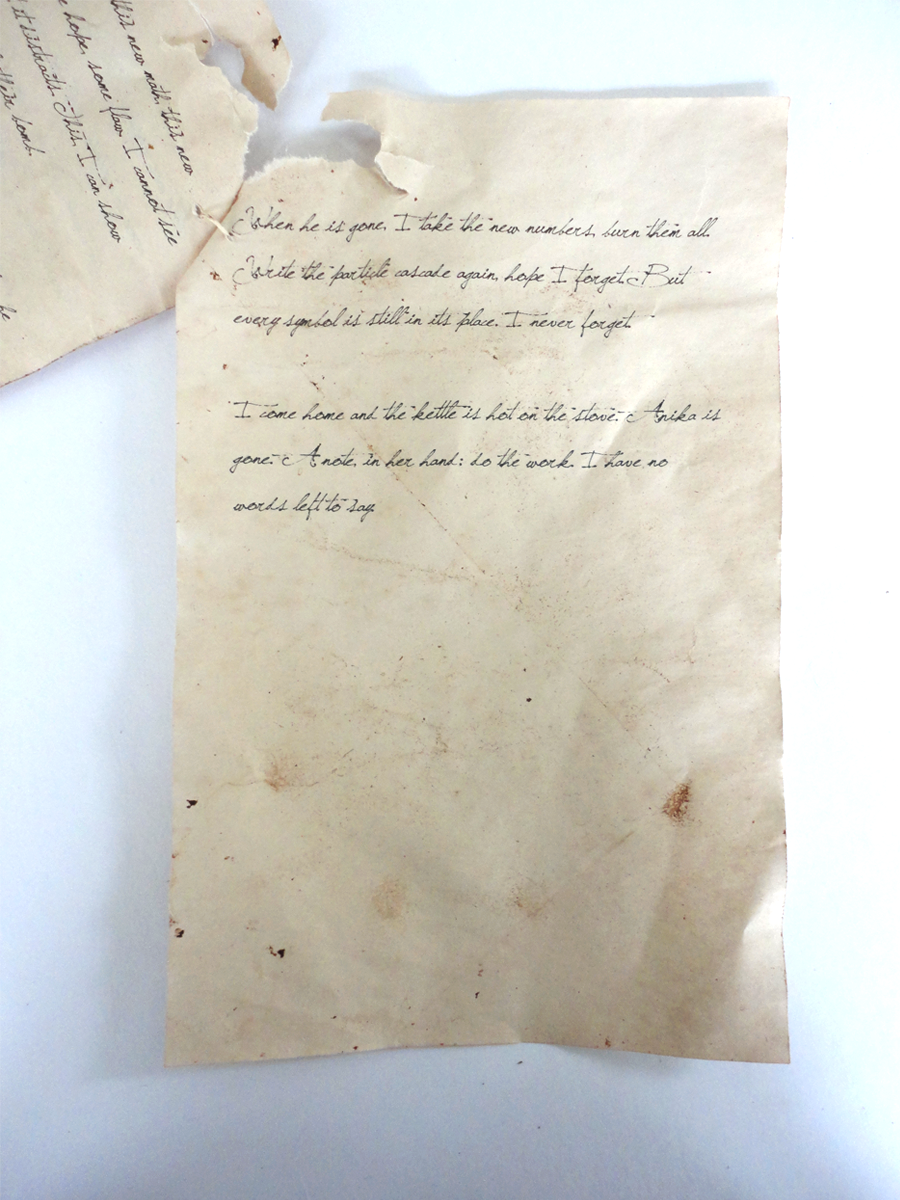 this new math, this new
hope, some flaw. I cannot see
it distracts. This, I can show
their bomb.
When he is gone, I take the new numbers, burn them all.
Write the particle cascade again, hope I forget. But
every symbol is still in its place. I never forget.
I come home and the kettle is hot on the stove. Anika is
gone. A note, in her hand: do the work. I have no
words left to say.